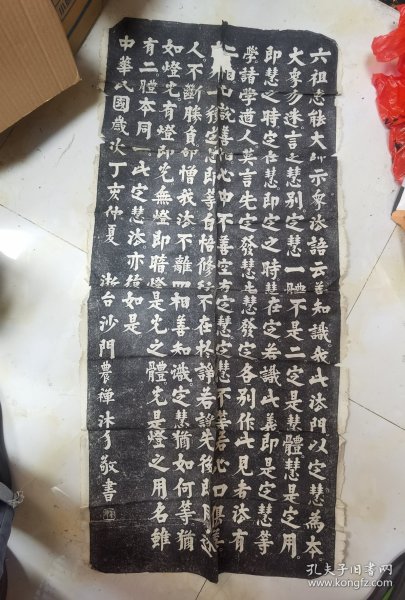 六祖惠能大師示眾法語云善知識我此法門以定慧為本
大眾勿迷言定慧別定慧一體不是二定是慧體慧是定用
即慧之時定在慧即定之時慧在定若識此義即是定慧等
學諸學道人莫言先定發慧先慧發定各別作此見者法有
二相口說善語心中不善空有定慧定慧不等若心口俱善
定慧即等自悟修行不在於諍若諍先後即同迷
人不斷勝負卻增我法不離四相善知識定慧猶如何等猶
如燈光有燈即光無燈即暗燈是光之體光是燈之用名雖
有二體本同一此定慧法亦復如是
中華民國歲次丁亥仲夏 台沙門農禪沐手敬書
孔夫子旧书网
www.kongfz.com